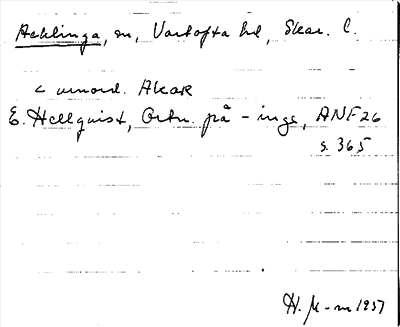 Acklinga, sn, Vartofta hd, Skar. l.
< urnord. AkaR
E. Hellquist, Ortn. på -inge, ANF 26
s. 365
H. M-m 1937